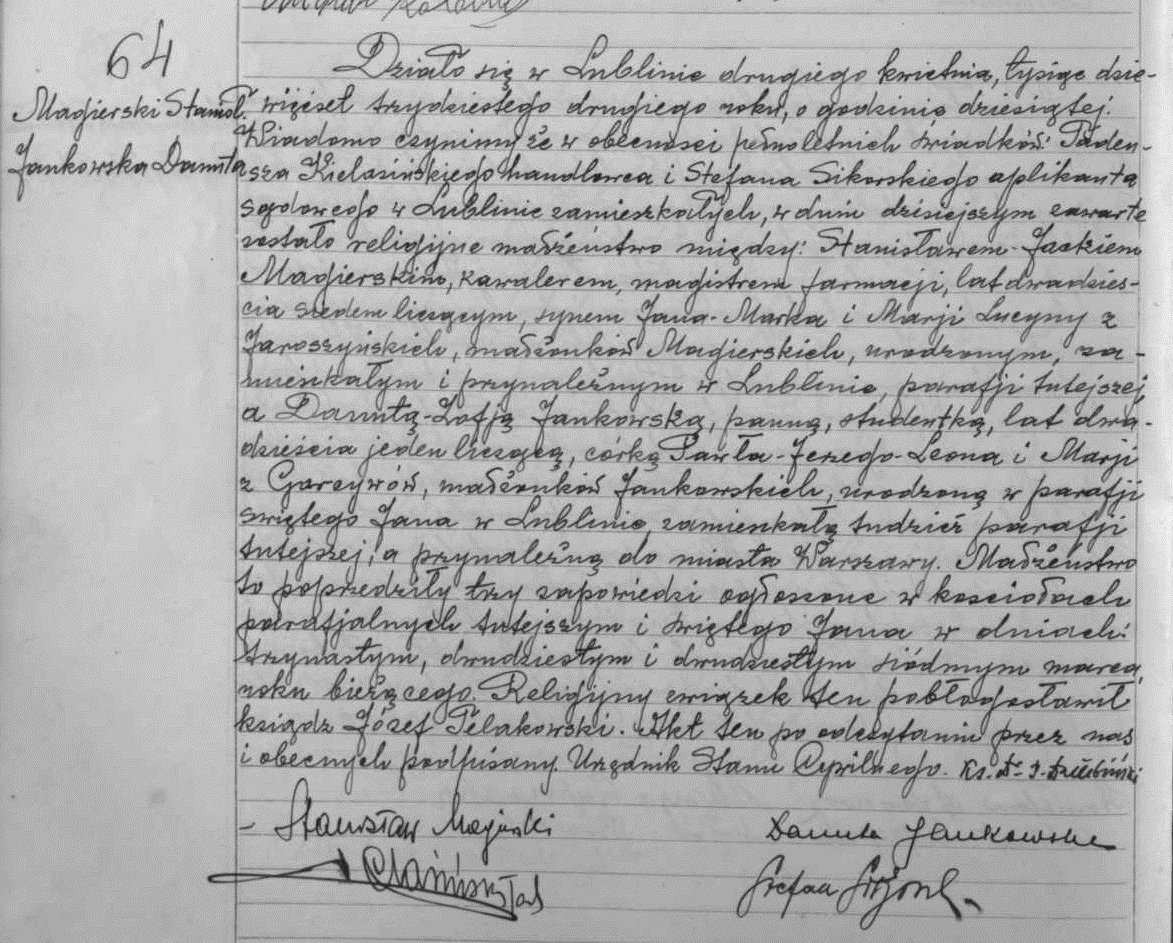 64
Magierski Stanisł.
Jankowska Danuta
Działo się w Lublinie drugiego kwietnia, tysiąc dzie-
więćset trzydziestego drugiego roku, o godzinie dziesiątej.
Wiadomo czynimy że w obecności pełnoletnich świadków: Tadeu-
sza Kielasińskiego handlowca i Stefana Sikorskiego aplikanta
sądowego w Lublinie zamieszkałych, w dniu dzisiejszym zawarte
zostało religijne małżeństwo między: Stanisławem-Jackiem
Magierskim, kawalerem, magistrem farmacji, lat dwadzieś-
cia siedem liczącym, synem Jana-Marka i Marji Lucyny z
Jaroszyńskich, małżonków Magierskich, urodzonym, za-
mieszkałym i przynależnym w Lublinie, parafji tutejszej,
a Danutą-Zofją Jankowską, panną, studentką, lat dwa-
dzieścia jeden liczącą, córką Pawła-Jerzego-Leona i Marji
z Garczyców, małżonków Jankowskich, urodzoną w parafji
świętego Jana w Lublinie, zamieszkałą tudzież parafji
tutejszej, a przynależną do miasta Warszawy. Małżeństwo
to poprzedziły trzy zapowiedzi ogłoszone w kościołach
parafjalnych tutejszym i świętego Jana w dniach:
trzynastym, dwudziestym i dwudziestym siódmym marca,
roku bieżącego. Religijny związek ten pobłogosławił
ksiądz Józef Pelakowski. Akt ten po odczytaniu przez nas
i obecnych podpisany. Urzędnik Stanu Cywilnego. Ks. Dr J. Dziubiński
- Stanisław Magierski
Danuta Jankowska
Stefan